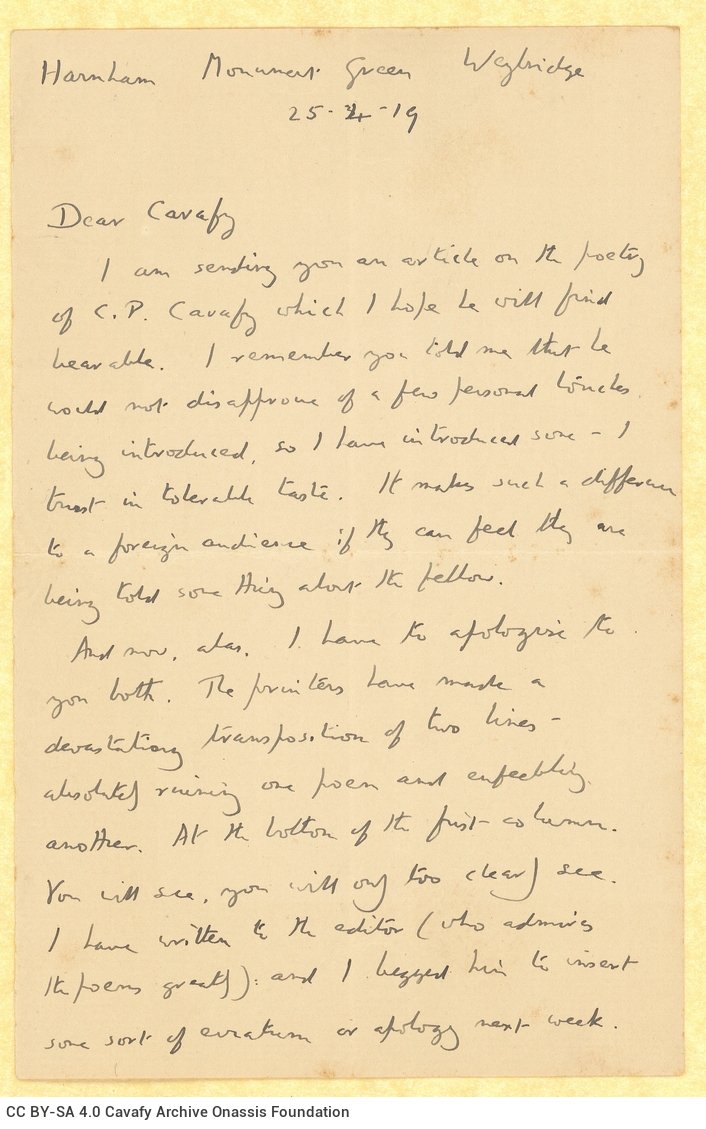 Harnham Monument Green Weybridge
25-4-19
Dear Cavafy
I am sending you an article on the poetry
of C.P. Cavafy which I hope he will find
bearable. I remember you told me that he
would not disapprove of a few personal touches
being introduced, so I have introduced some - I
trust in tolerable taste. It makes such a difference
to a foreign audience if they can feel they are
being told something about the fellow.
And now, alas, I have to apologise to
you both. The printers have made a
devastating transposition of two lines -
absolutely ruining one poem and enfeebling
another. At the bottom of the first column.
You will see, you will only too clearly see.
I have written to the editor (who admires
the poems greatly): and I begged him to insert
some sort of erratum or apology next week.
CC BY-SA 4.0 Cavafy Archive Onassis Foundation